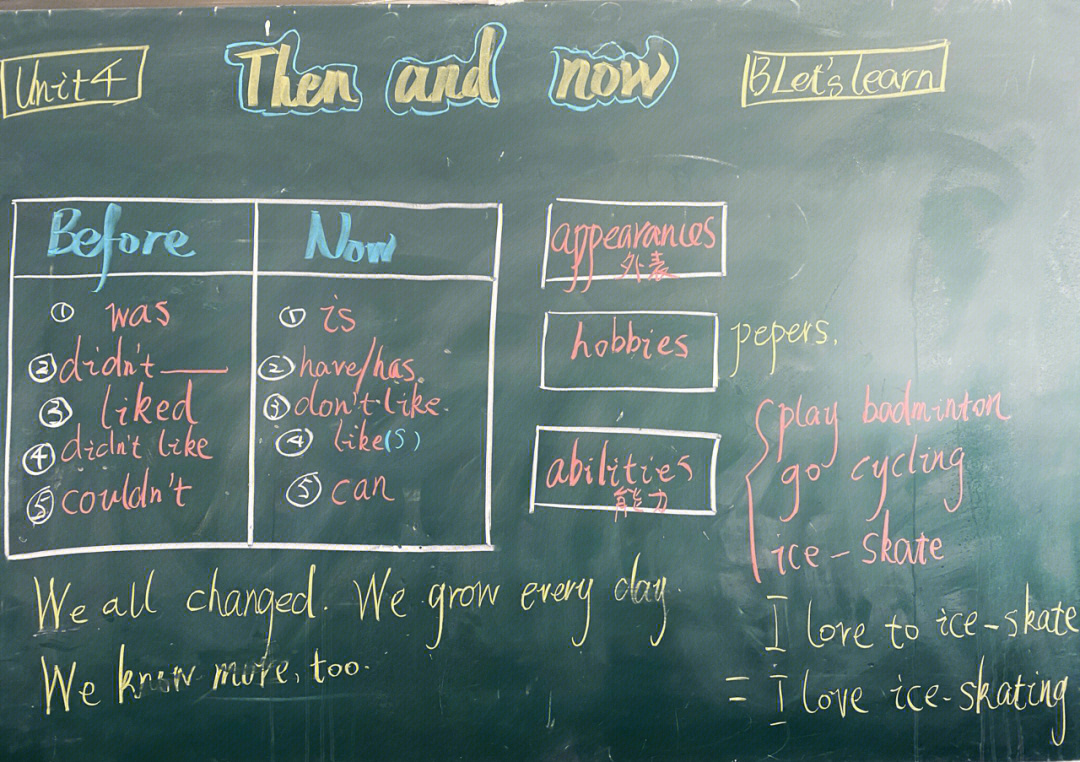 Unit 4
Then and now
B Let's learn
Before
Now
① was
② didn't ____
③ liked
④ didn't like
⑤ couldn't
① is
② have/has.
③ don't like.
④ like(s)
⑤ can
appearances
外表
hobbies
abilities
能力
pepers.
play badminton
go cycling
ice-skate
We all changed. We grow every day.
We know more, too.
I love to ice-skate
= I love ice-skating